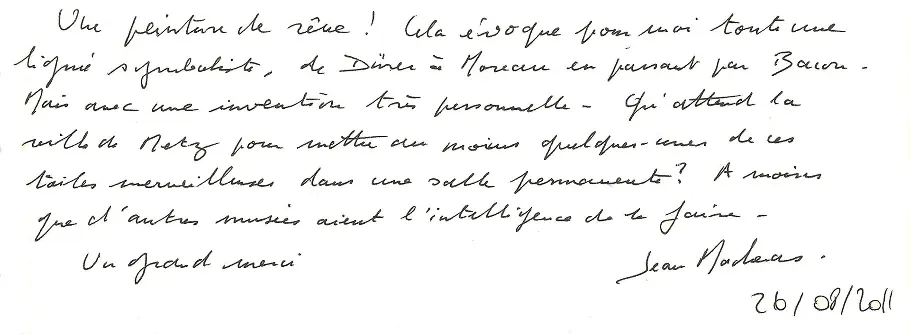 Une peinture de rêve ! Cela évoque pour moi toute une
lignée symboliste, de Dürer à Moreau en passant par Bacon -
Mais avec une invention très personnelle - Qu'attend la
ville de Metz pour mettre au moins quelques-unes de ces
toiles merveilleuses dans une salle permanente ? A moins
que d'autres musées aient l'intelligence de le faire -
Un grand merci
Jean
26/08/2011